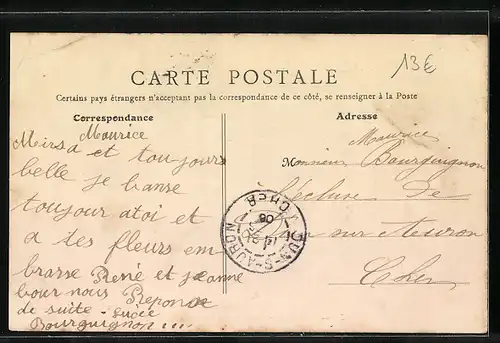 13€
CARTE POSTALE
Certains pays étrangers n'acceptant pas la correspondance de ce côté, se renseigner à la Poste
Correspondance
Maurice
et toujours
belle je banse
toujour a toi et
a tes fleurs em
brasse René et jeanne
bour nous Reponse
de suite - Lucie
Bourguignon
Adresse
Maurice
Monsieur Bourguignon
l'écluse de
sur Auron
Cher
DUN-S-AURON
CHER
08